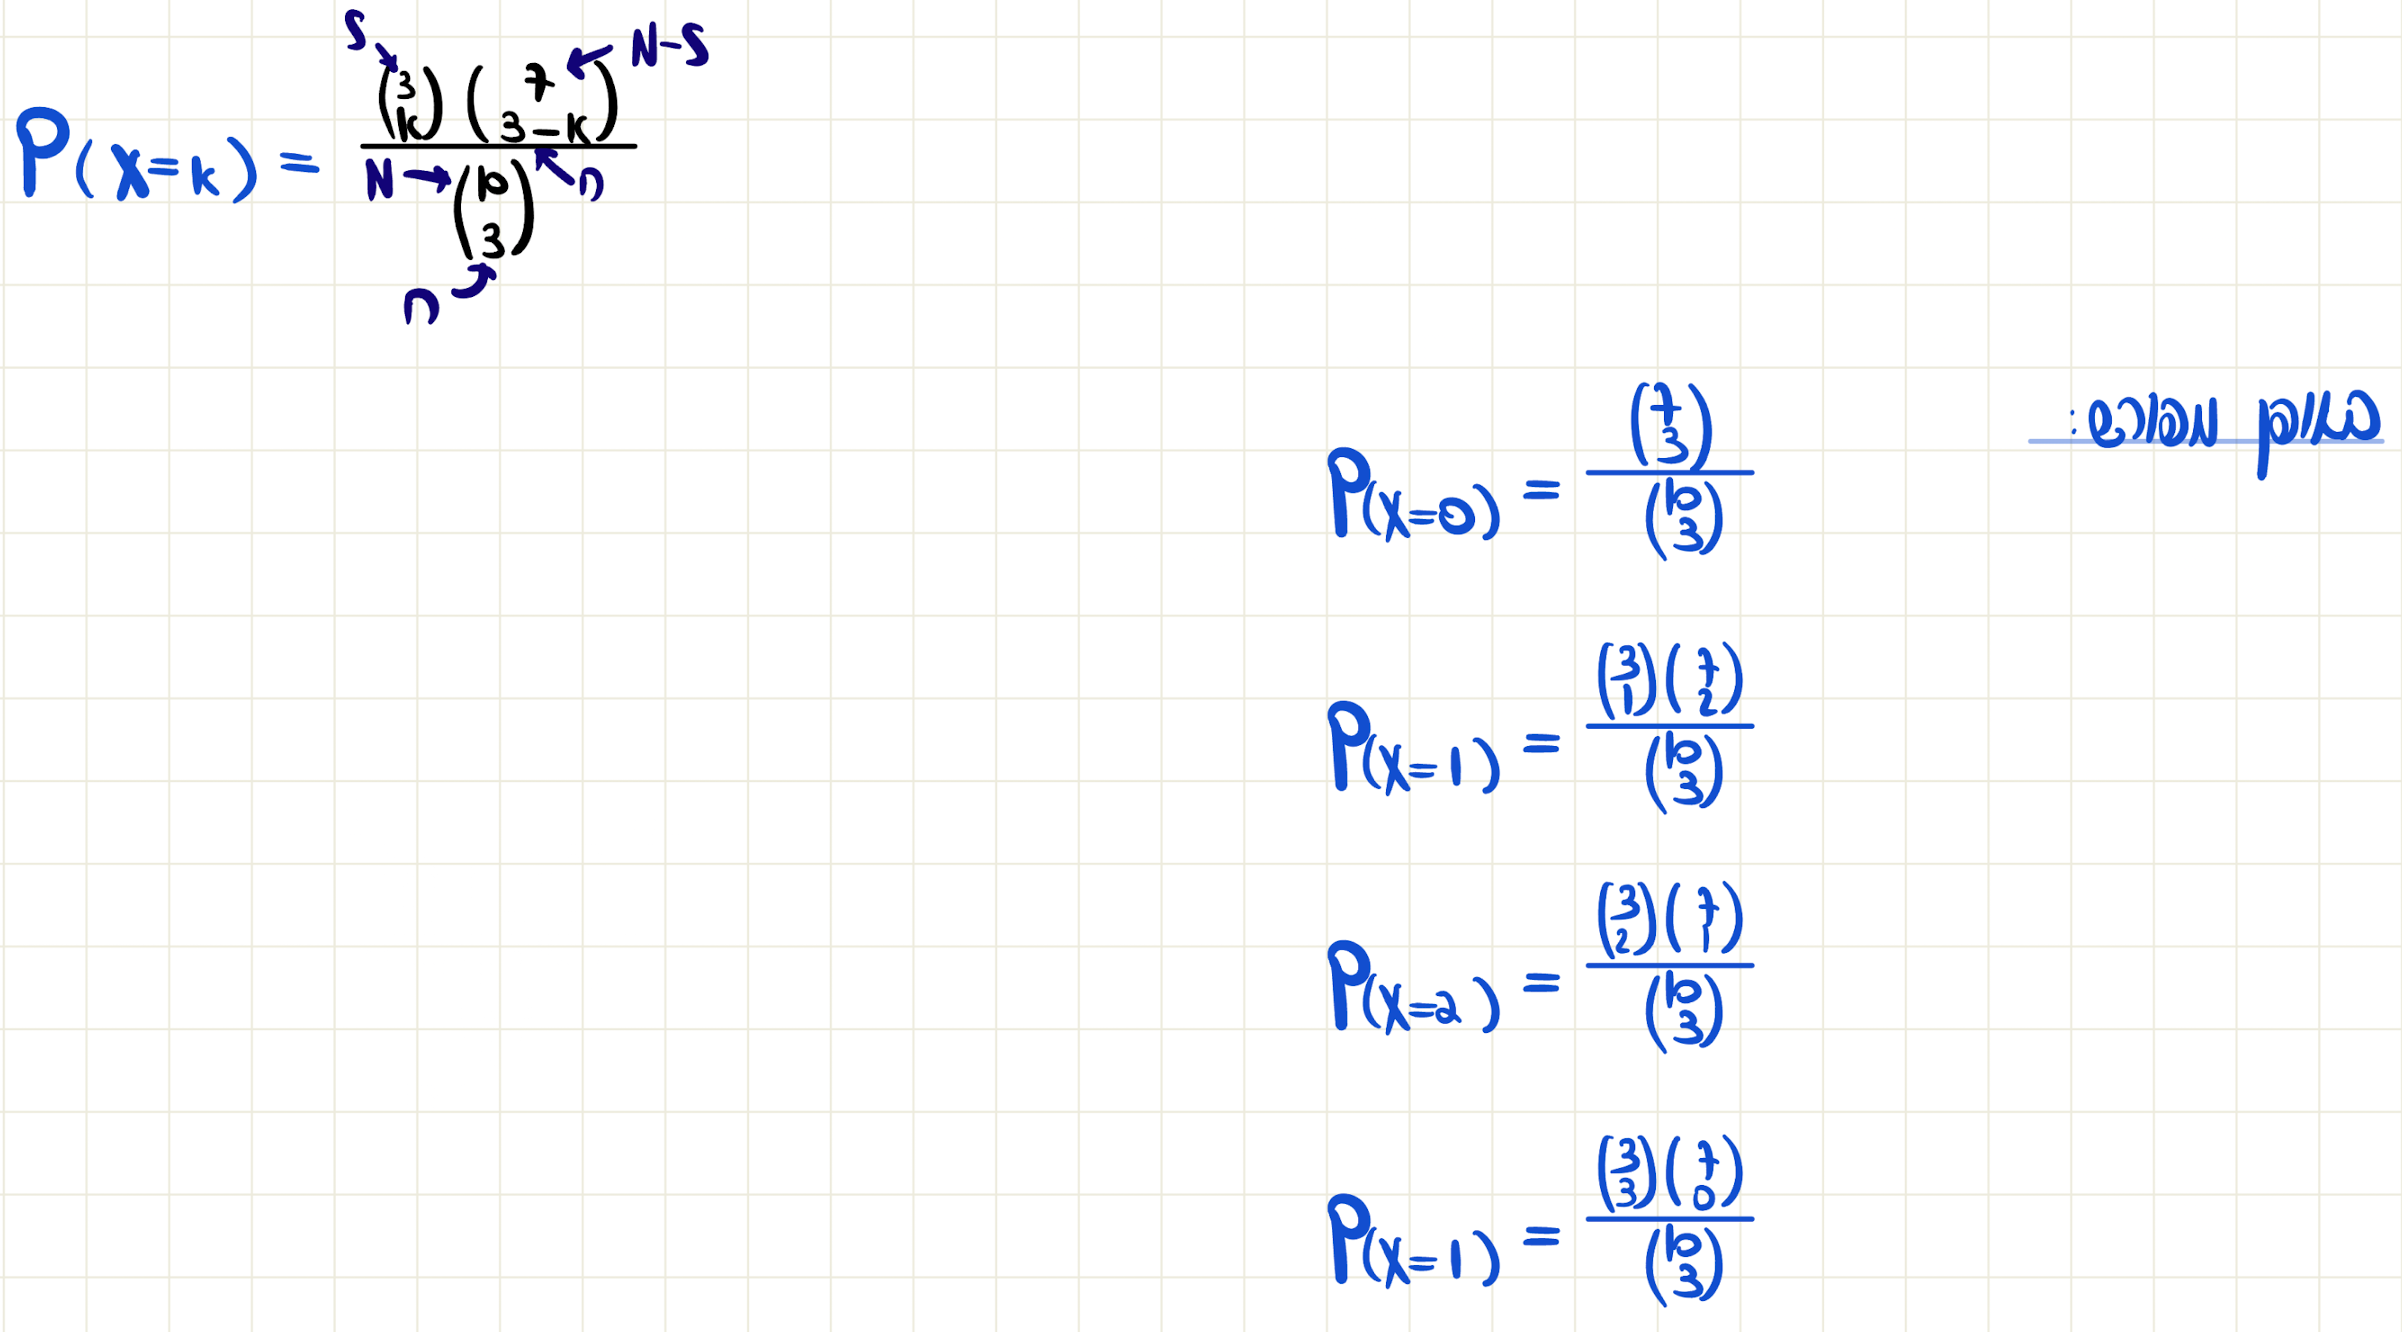 P(X=k) = \frac{\binom{3}{k}\binom{7}{3-k}}{\binom{10}{3}}
S
N-S
N
n
n
P(X=0) = \frac{\binom{7}{3}}{\binom{10}{3}}
P(X=1) = \frac{\binom{3}{1}\binom{7}{2}}{\binom{10}{3}}
P(X=2) = \frac{\binom{3}{2}\binom{7}{1}}{\binom{10}{3}}
P(X=1) = \frac{\binom{3}{3}\binom{7}{0}}{\binom{10}{3}}